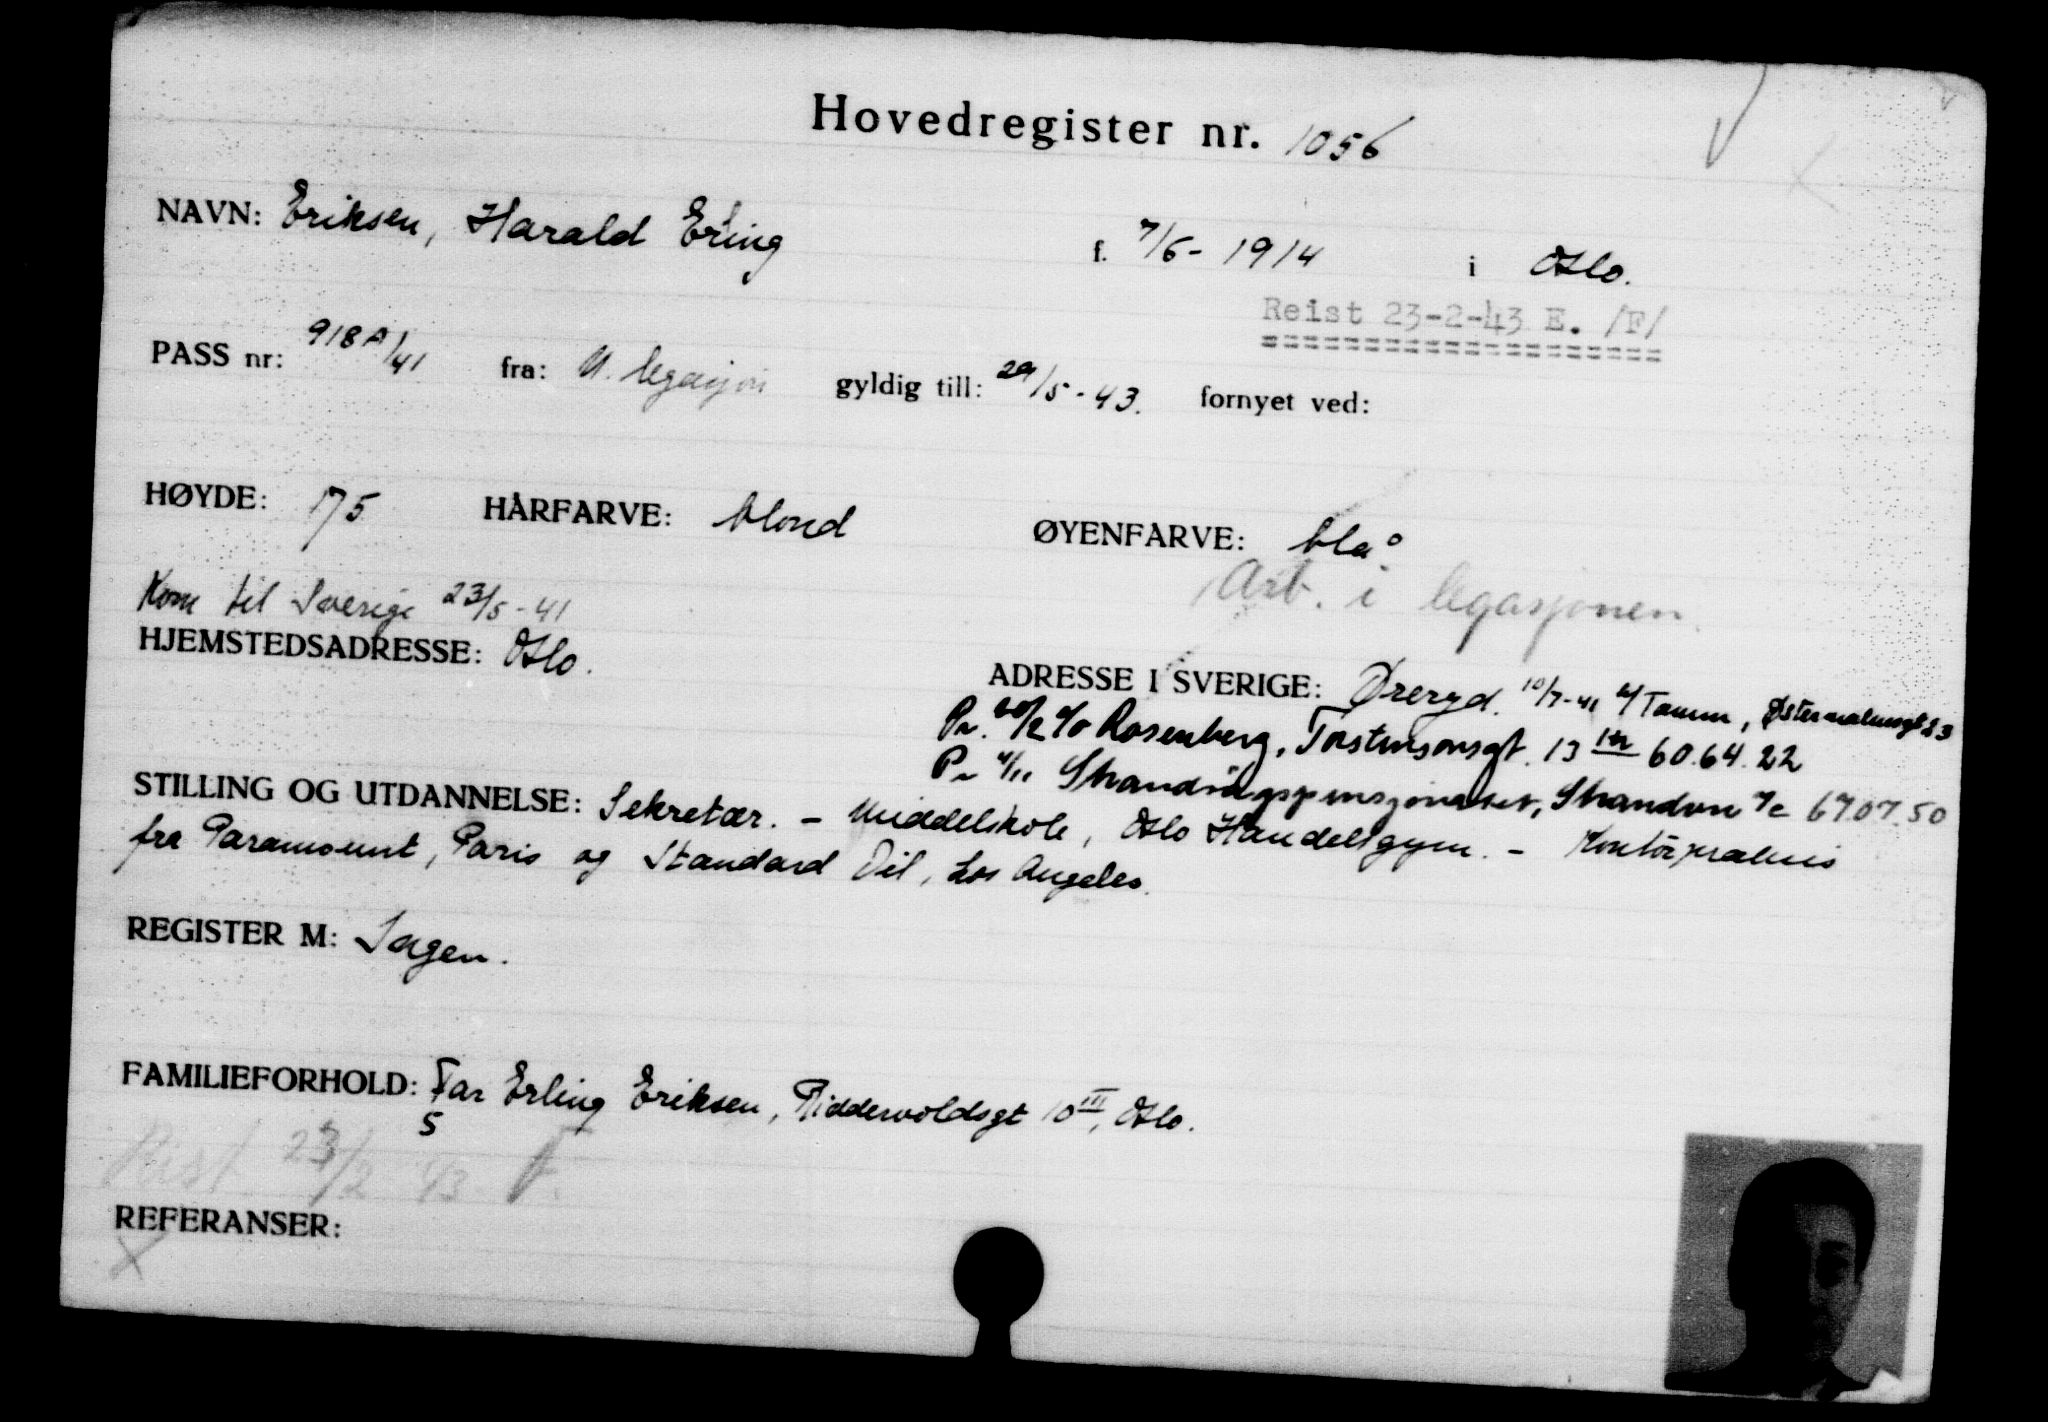 Hovedregister nr. 1056
NAVN: Eriksen, Harald Erling f. 7/6 - 1914 i Oslo.
Reist 23-2-43 E. /F/
PASS nr: 918 A/41 fra: N. legasjon gyldig till: 29/5 - 43. fornyet ved:
HØYDE: 175 HÅRFARVE: blond ØYENFARVE: blå
Arb. i legasjonen.
Kom til Sverige 23/5 - 41
HJEMSTEDSADRESSE: Oslo.
ADRESSE I SVERIGE: Øreryd. 10/7-41 c/ Tamm, Østermalmsgt 83
Pr. c/o Rosenberg, Torstensonsgt. 13 60.64.22
Pr Strandvägspensjonatet, Strandvn 7c 67.07.50
STILLING OG UTDANNELSE: Sekretær. - Middelskole, Oslo Handelsgym. - Kontorpraksis
fra Paramount, Paris og Standard Oil, Los Angeles.
REGISTER M: Ingen.
FAMILIEFORHOLD: Far Erling Eriksen, Riddervoldsgt 10 III, Oslo.
5
Reist 23/2 43 F.
REFERANSER: